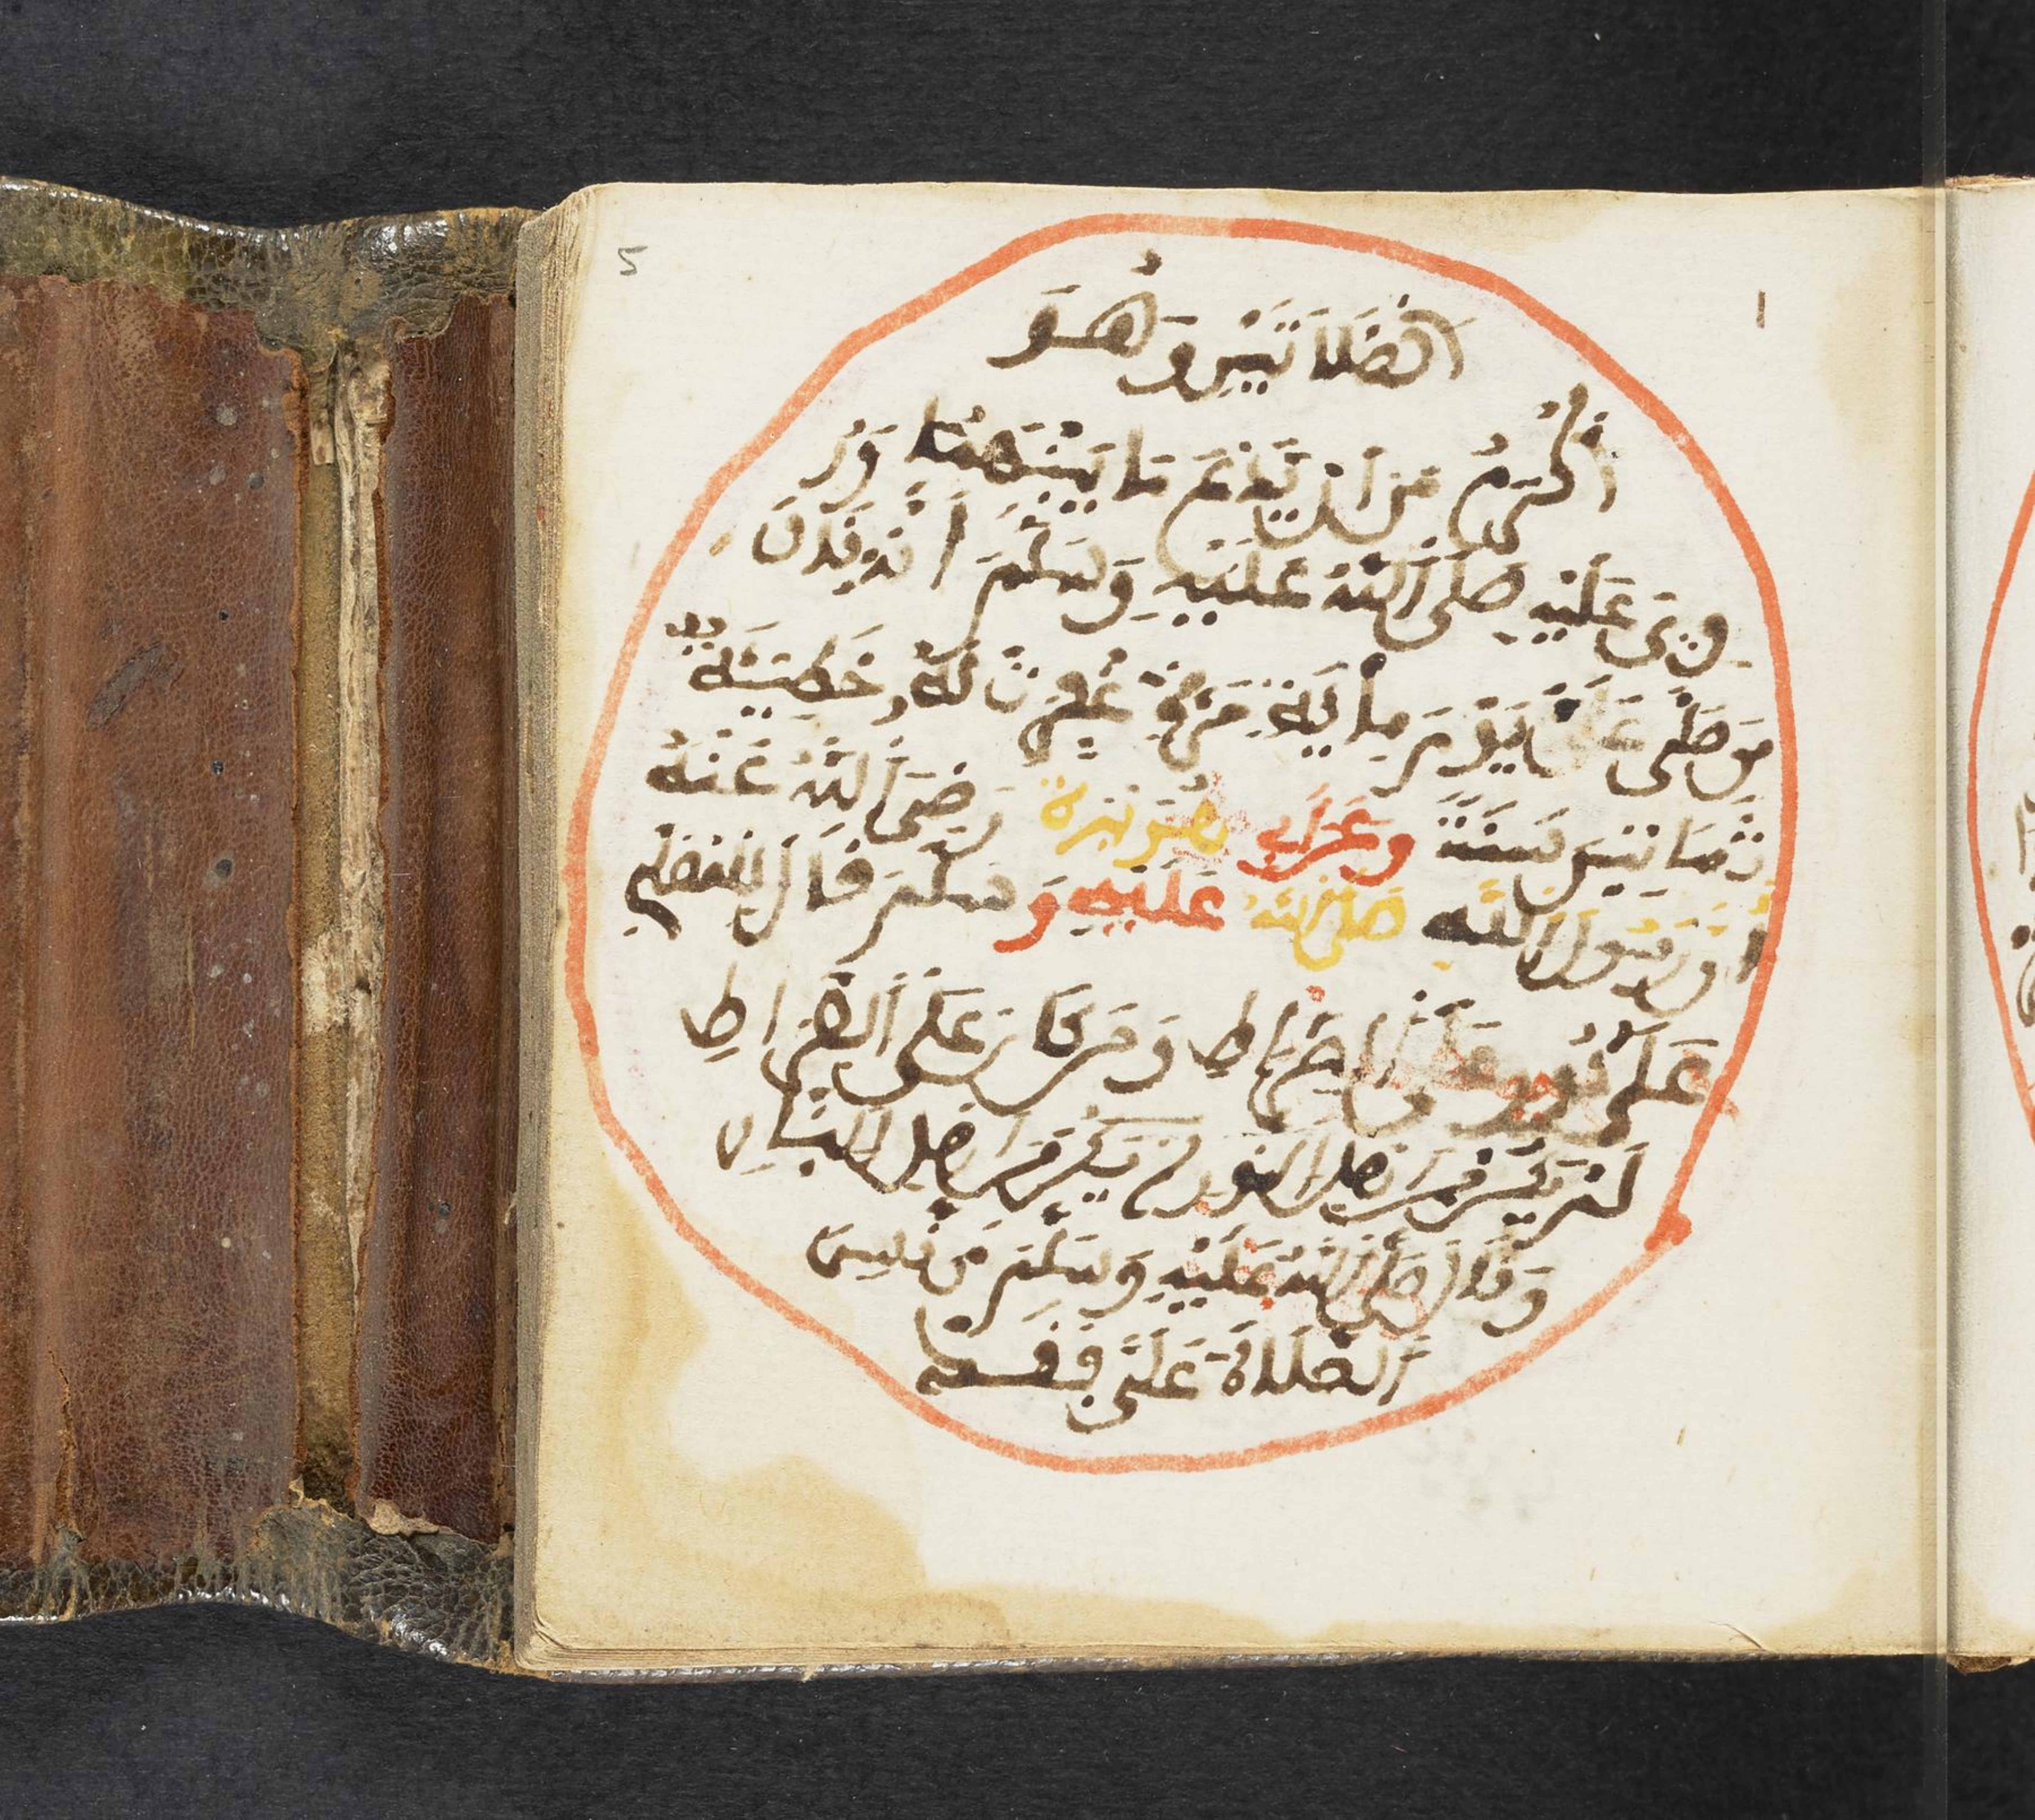 5
الصلاتين وهو
أكرم من ان يدع ما بينهما ور
وي عليه صلى الله عليه وسلم انه قال
من صلى علي يوم مائة مرة غفرت له خطيئة
ثمانين سنة وعن ابي هريرة رضي الله عنه
ان رسول الله صلى الله عليه وسلم قال للمصلي
علي نور على الصراط ومن كان على الصراط
لم يكن من اهل النور لم يكن من اهل النار
وقال صلى الله عليه وسلم من نسي
الصلاة علي فقد